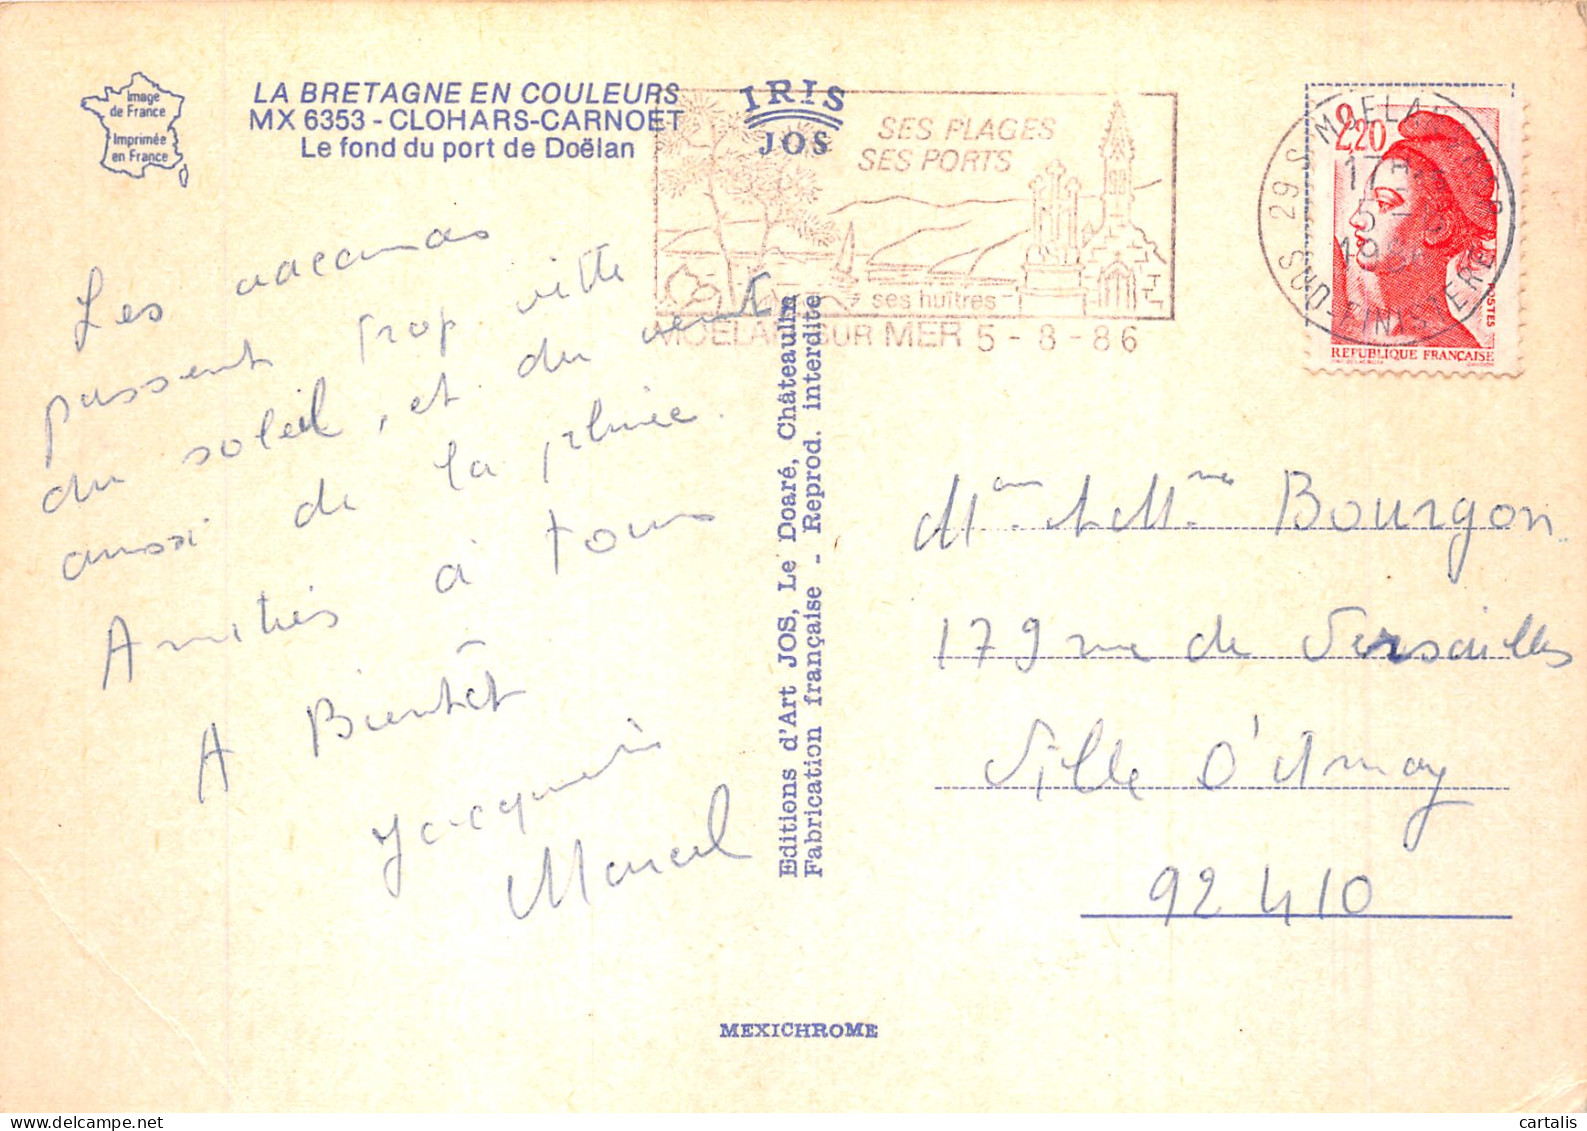 Image
de France
Imprimée
en France
LA BRETAGNE EN COULEURS
MX 6353 - CLOHARS-CARNOET
Le fond du port de Doëlan
IRIS
JOS
SES PLAGES
SES PORTS
ses huîtres
MOELAN SUR MER 5 - 8 - 86
29 S MOELAN
17 H
5 - 8
SUD-FINISTERE
2,20
POSTES
REPUBLIQUE FRANÇAISE
Les vacances
passent trop vitte
du soleil, et du vent
aussi de la pluie.
Amitiés à tous
A Bientôt
Jacqueline
Marcel
Editions d'Art JOS, Le Doaré, Châteaulin
Fabrication française - Reprod. interdite
Bourgon
179 rue de Versailles
Ville d'Avray
92410
MEXICHROME
cartalis